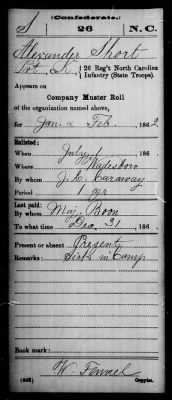 (Confederate.)
S 26 N.C.
Alexander Short
Pvt. K, { 26 Reg't North Carolina
Infantry (State Troops).
Appears on
Company Muster Roll
of the organization named above,
for Jan & Feb, 1862
Enlisted:
When July 1, 186
Where Wadesboro
By whom J. C. Caraway
Period 1 yr
Last paid:
By whom Maj. Boon
To what time Dec. 31, 186
Present or absent Present
Remarks: Sick in Camp
Book mark:
W. Fennel
(642) Copyist.